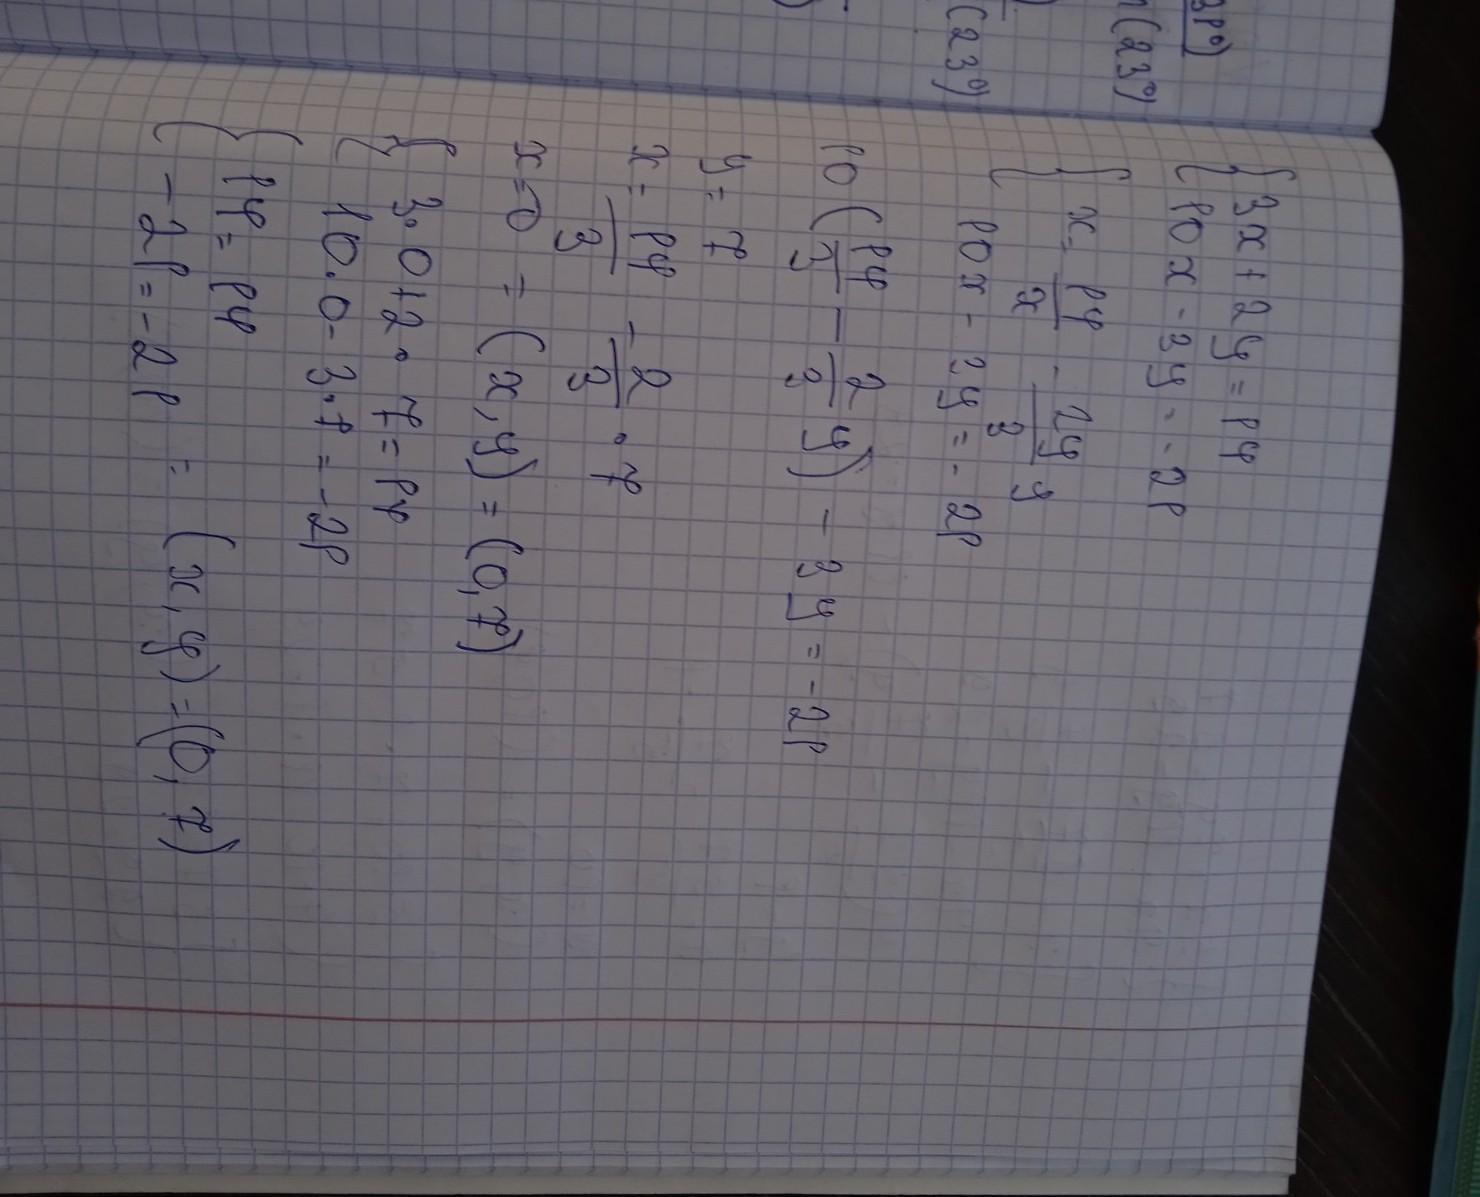 3x + 2y = 14
10x - 3y = -21
x = 14/3 - 2y/3 y
10x - 3y = -21
10 (14/3 - 2/3 y) - 3y = -21
y = 7
x = 14/3 - 2/3 · 7
x = 0 = (x, y) = (0, 7)
3·0 + 2·7 = 14
10·0 - 3·7 = -21
14 = 14
-21 = -21 = (x, y) = (0, 7)
(23°)
(23°)